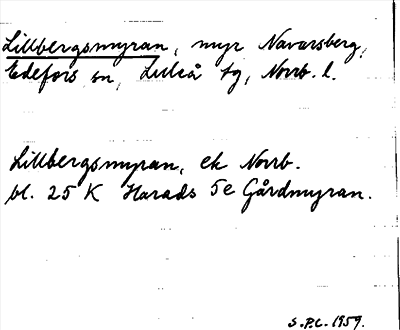 Lillbergsmyran, myr Navarsberg,
Edefors sn, Luleå tg, Norrb. l.
Lillbergsmyran, ek Norrb.
bl. 25 K Harads 5e Gårdmyran.
S.P.L. 1959.